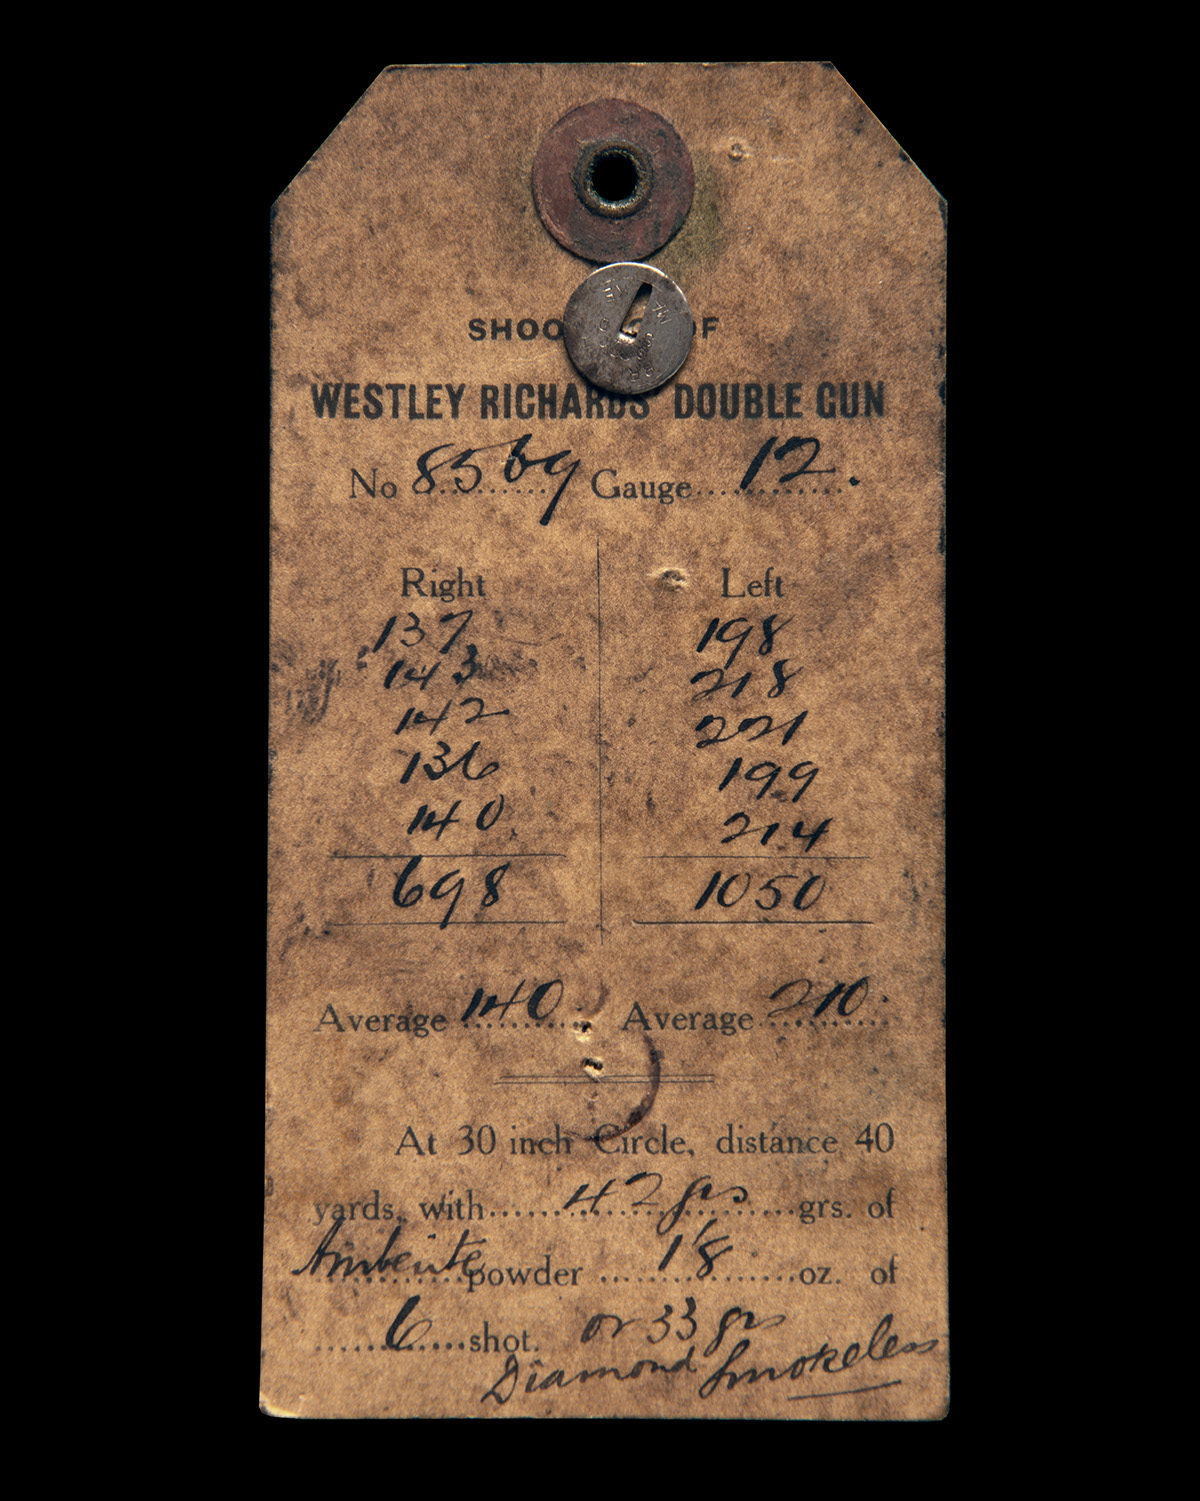 SHOO OF
WESTLEY RICHARDS DOUBLE GUN
No 8569 Gauge 12.
Right Left
137 198
143 218
142 221
136 199
140 214
698 1050
Average 140 Average 210.
At 30 inch Circle, distance 40
yards, with 42 grs grs. of
Amberite powder 1 1/8 oz. of
6 shot. or 33 grs
Diamond Smokeless